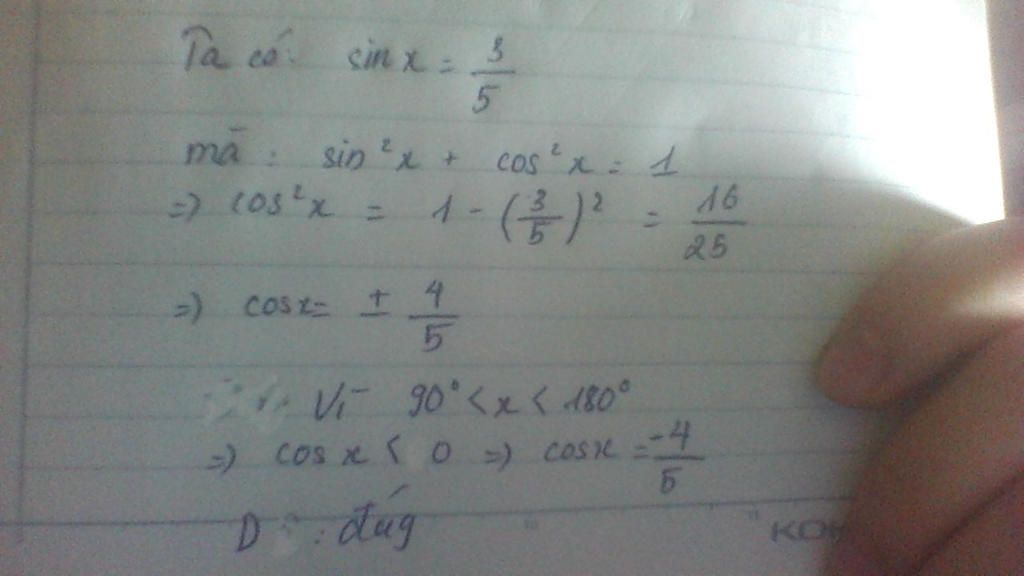 Ta có: sin x = 3/5
mà : sin²x + cos²x = 1
=> cos²x = 1 - (3/5)² = 16/25
=> cosx = ± 4/5
Vì 90° < x < 180°
=> cos x < 0 => cosx = -4/5
D : đúg